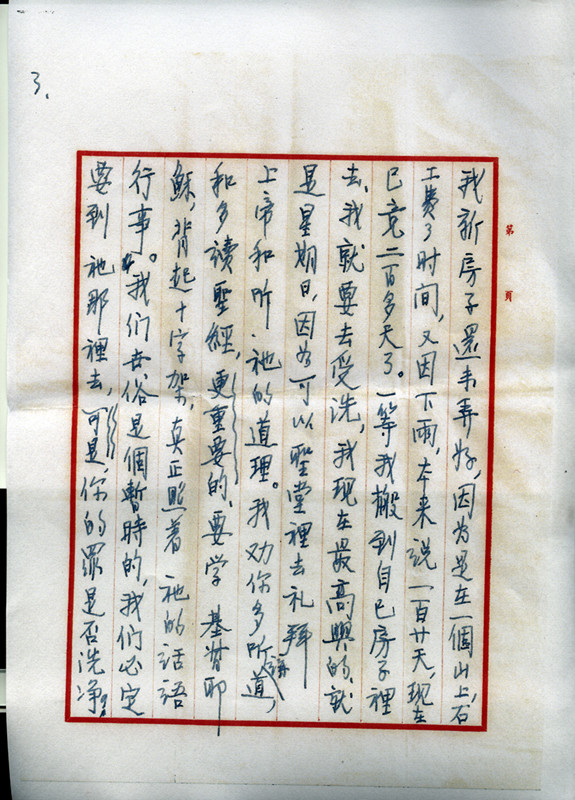 3.
第 頁
我新房子還未弄好,因为是在一個山上,石
工費了时间,又因下雨,本来説一百廿天,現在
已竟二百多天了。一等我搬到自己房子裡
去,我就要去受洗,我现在最高興的,就
是星期日,因为可以聖堂裡去礼拜
上帝和听 祂的道理。我劝你多听講道,
和多讀聖經,更重要的,要学 基督耶
穌,背起十字架,真正照着 祂的話語
行事。我们世俗是個暫時的,我们必定
要到 祂那裡去,可是,你的罪是否洗净